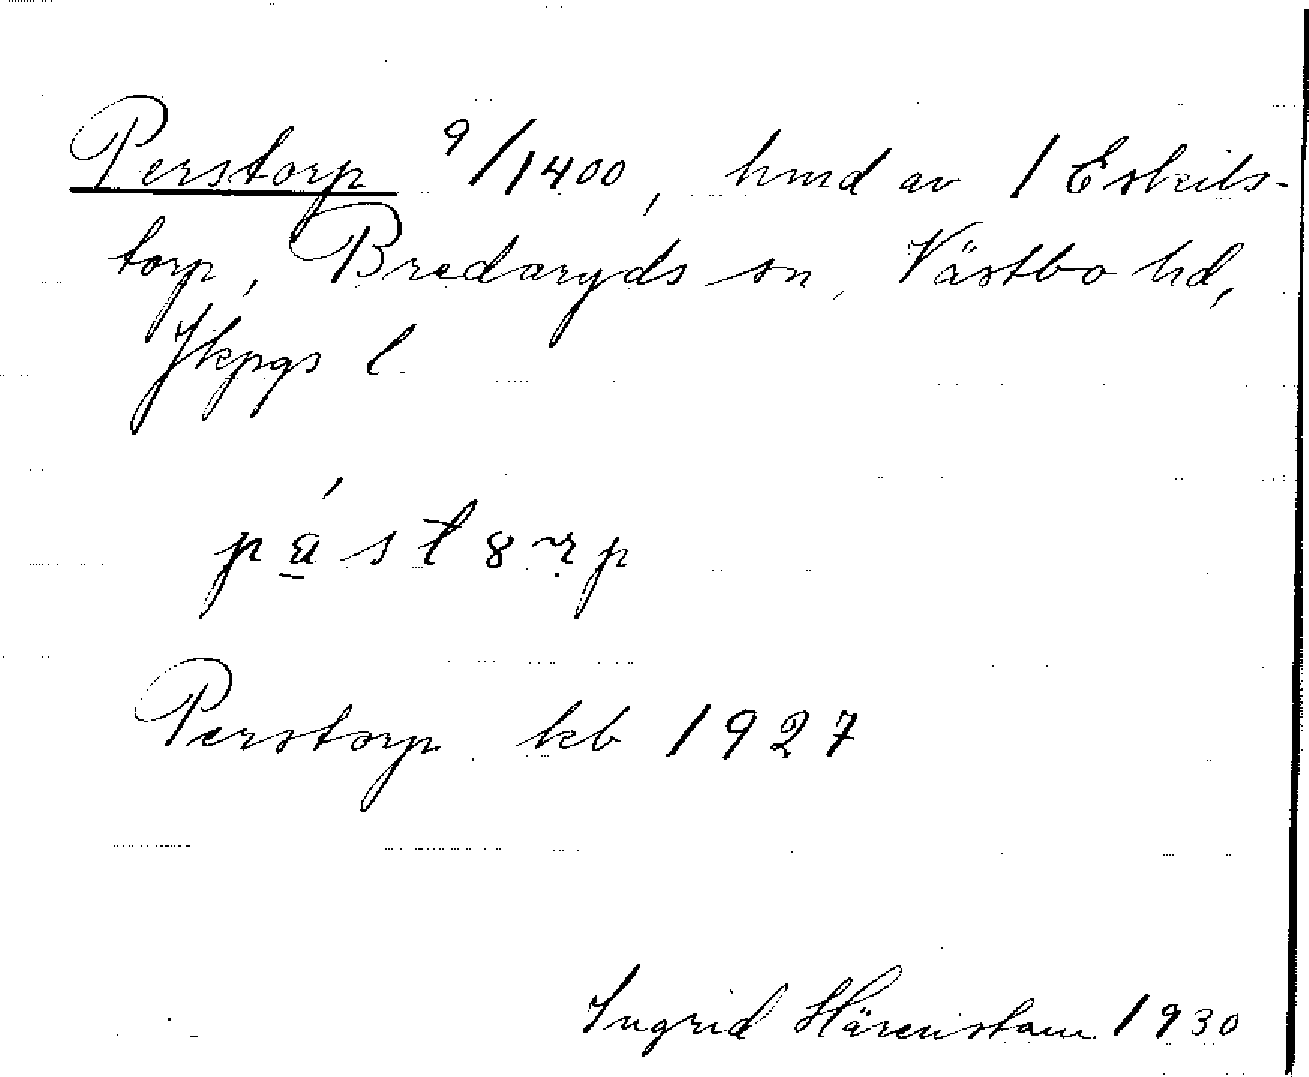 Perstorp 9/1400, hmd av 1 Eskils-
torp, Bredaryds sn, Västbo hd,
Jkpgs l.
Perstorp kb 1927
Ingrid Härenstam 1930